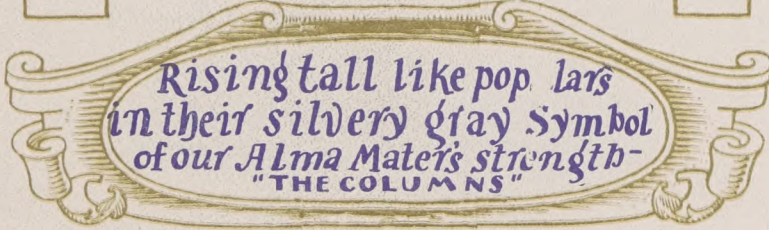 Rising tall like pop lars
in their silvery gray Symbol
of our Alma Mater's strength-
"THE COLUMNS"